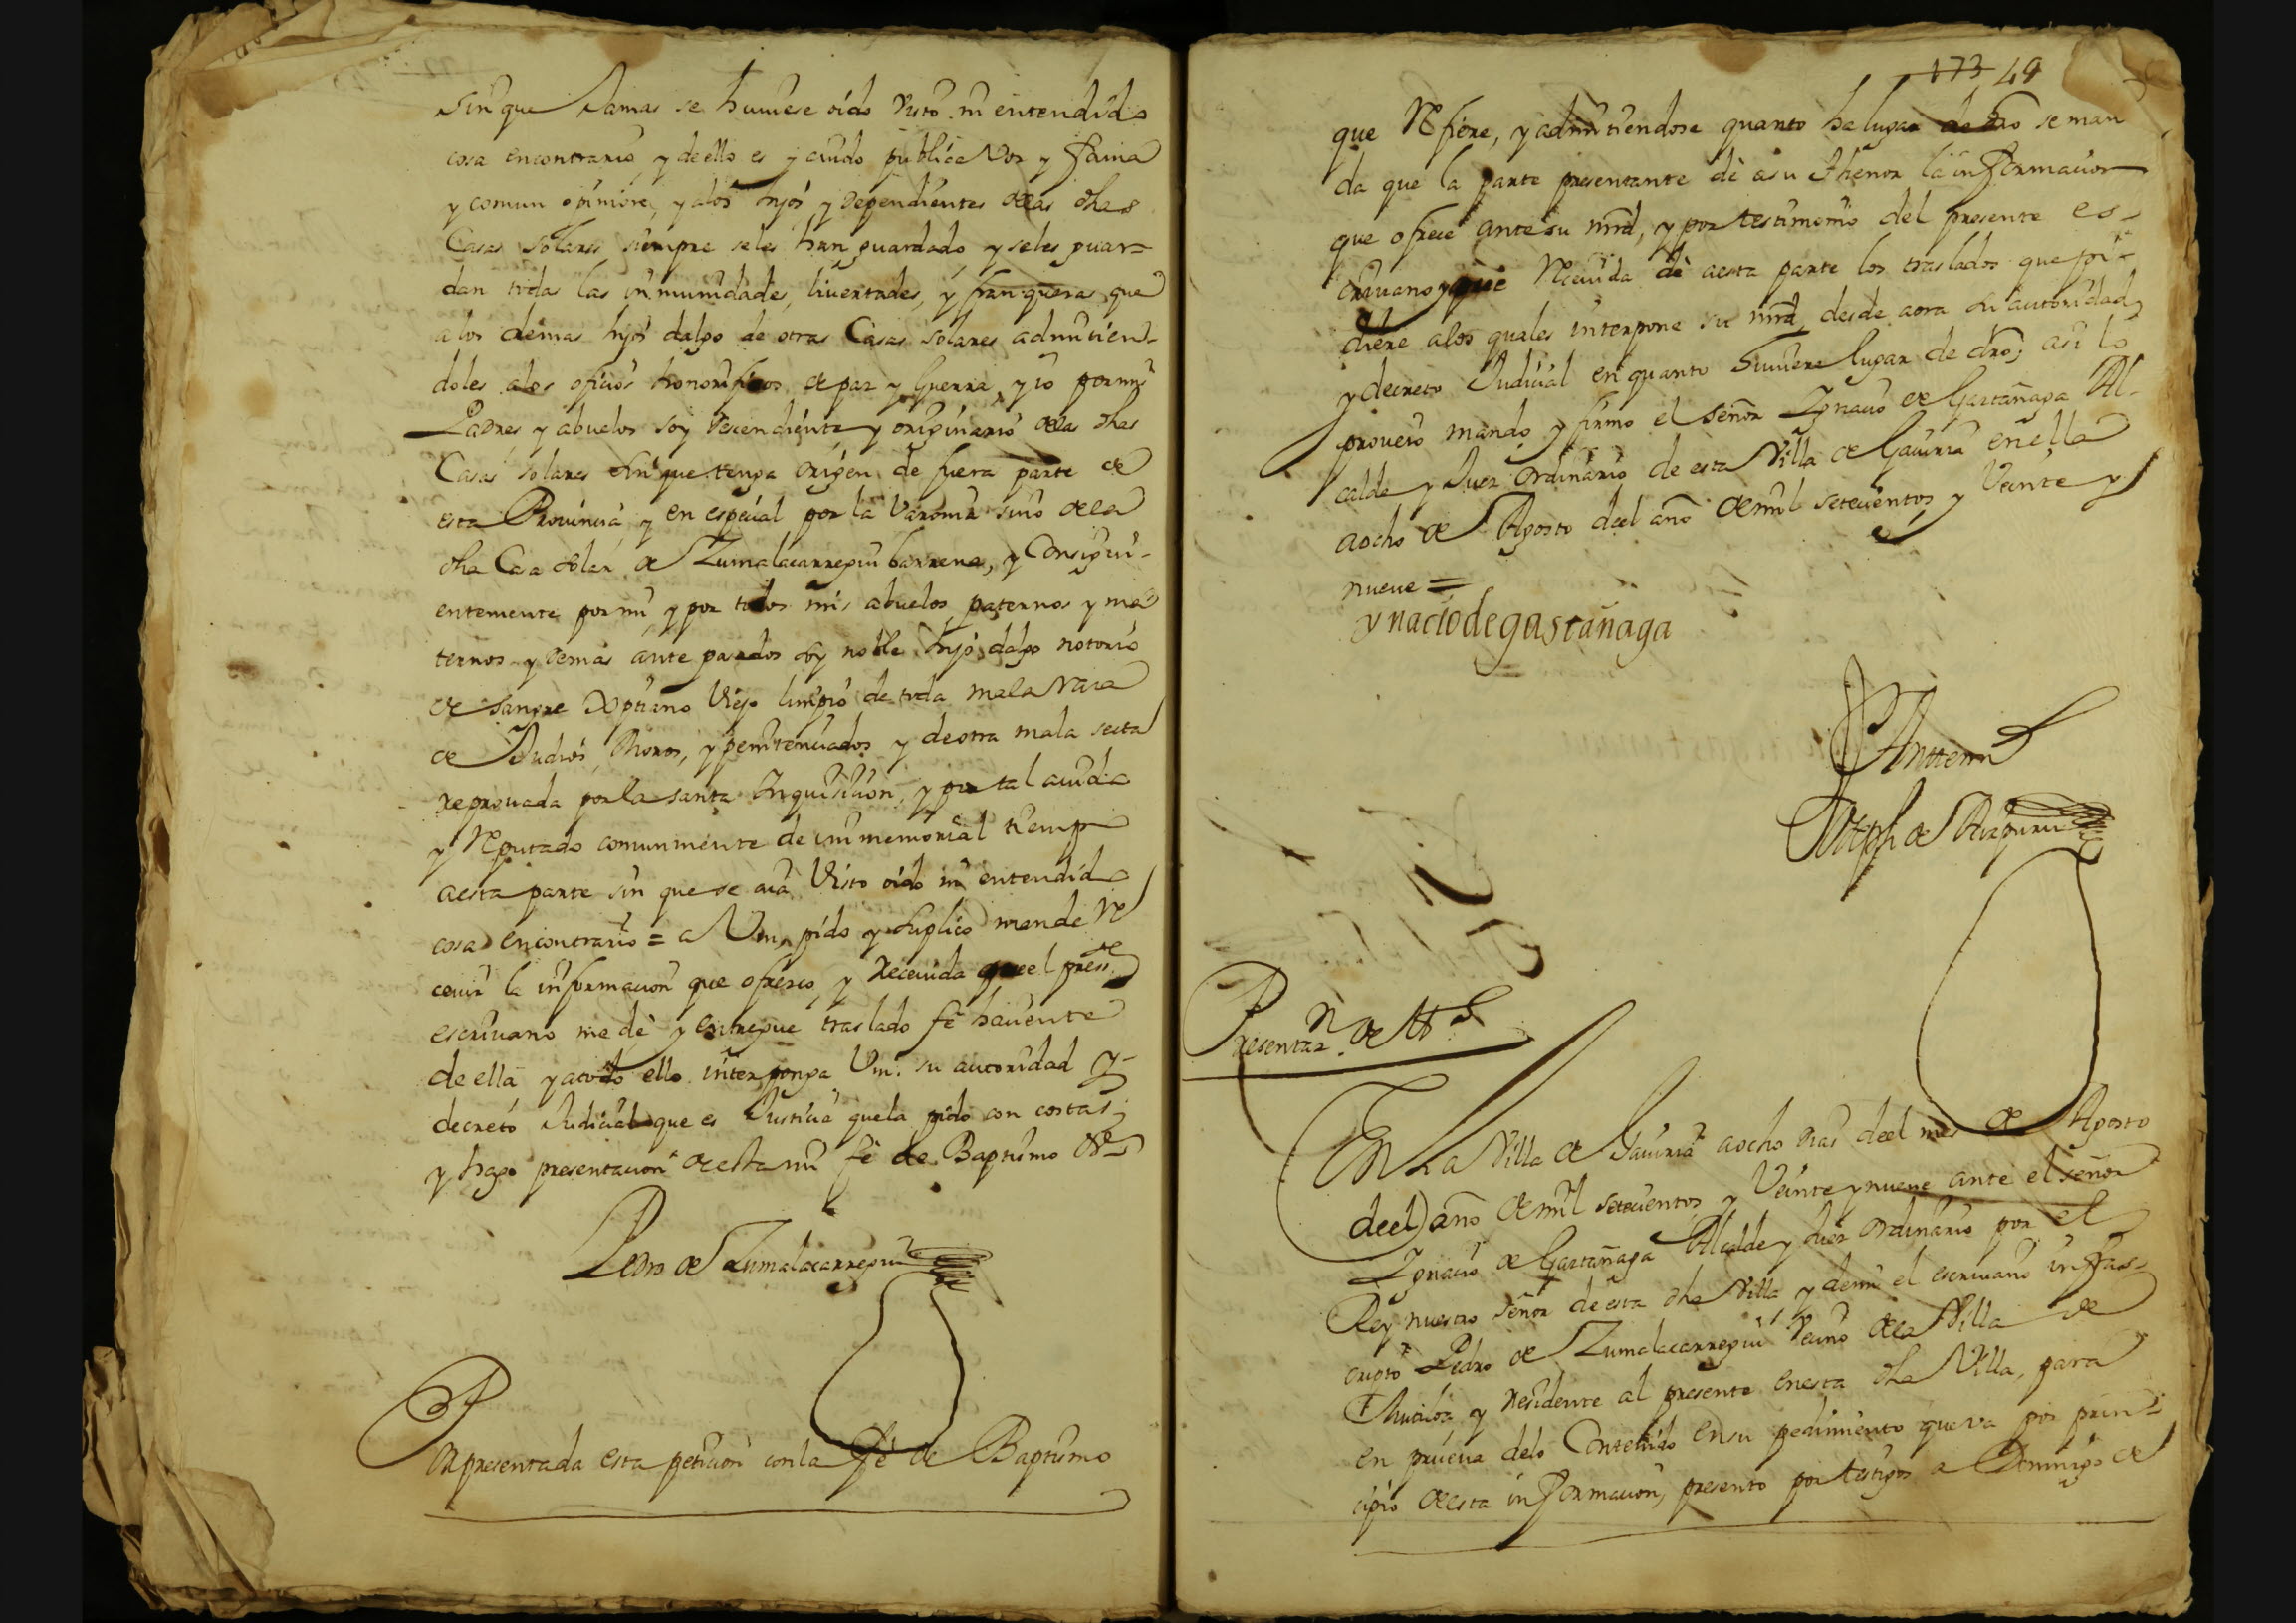 sin que Jamas se huuiese oido visto ni entendido
cosa encontrario, y de ello es y a auido publica Voz y fama
y comun opinion, y alos hijos y dependientes delas dhas
Casas solares siempre seles han guardado y seles guar-
dan todas las inmunidades, livertades, y franquezas que
a los demas hijos dalgo de otras Casas solares admitien-
doles alos oficios honorificos de paz y Guerra, y io por mis
Padres y abuelos soy descendiente y originario delas dhas
Casas solares sin que tenga origen de fuera parte de
esta Provincia, y en especial por la Varonia sino dela
dha Casa solar de Zumalacarregui barrena, y Consigui-
entemente por mi, y por todos mis abuelos paternos y ma
ternos y demas ante pasados soy noble hijo dalgo notorio
de sangre Xptiano Viejo limpio de toda mala raza
de Judios, Moros, y penitenciados y de otra mala secta
reprouada por la santa Inquisicion, y por tal auido
y Reputado comunmente de inmemorial tiempo
a esta parte sin que se aia Visto oido ni entendido
cosa encontrario = a Vm. pido y suplico mande Re
ceuir la informacion que ofresco, y Receuida que el press.te
escriuano me dè y entregue traslado fè haciente
de ella y a todo ello interponga Vm. su autoridad y
decreto Judicial que es Justicia que la pido con costas;
y hago presentacion de esta mi fè de Baptismo Vt
Pedro de Zumalacarregui
Por presentada esta peticion con la Fè de Baptismo
173 49
que Refiere, y admitiendose quanto ha lugar de dro se man
da que la parte presentante dè a su thenor la informacion
que ofrece ante su mrd, y por testimonio del presente es-
criuano y que Receuida dè a esta parte los traslados que pi-
diere alos quales interpone su mrd, desde aora su autoridad
y decreto Judicial en quanto huuiere lugar de dro; asi lo
proueio mando y firmo el señor Ygnacio de Gastañaga Al-
calde y Juez ordinario de esta Villa de Gauiria en ella
a ocho de Agosto deel año de mil setecientos y Veinte y
nueue =
ynacio de gastañaga
Ante mi
Joseph de Aizpuru
Presentaz.n de tt.s
En La Villa de Gauiria a ocho dias deel mes de Agosto
deel año de mil setecientos y Veinte y nueue ante el señor
Ygnacio de Gastañaga Alcalde y Juez ordinario por el
Rey nuestro señor de esta dha Villa y de mi el escriuano infras-
cripto Pedro de Zumalacarregui Vecino dela Villa de
Mutiloa y residente al presente en esta dha Villa, para
en prueua delo Contenido en su pedimiento que va por prin-
cipio de esta informacion, presento por testigos a Domingo de